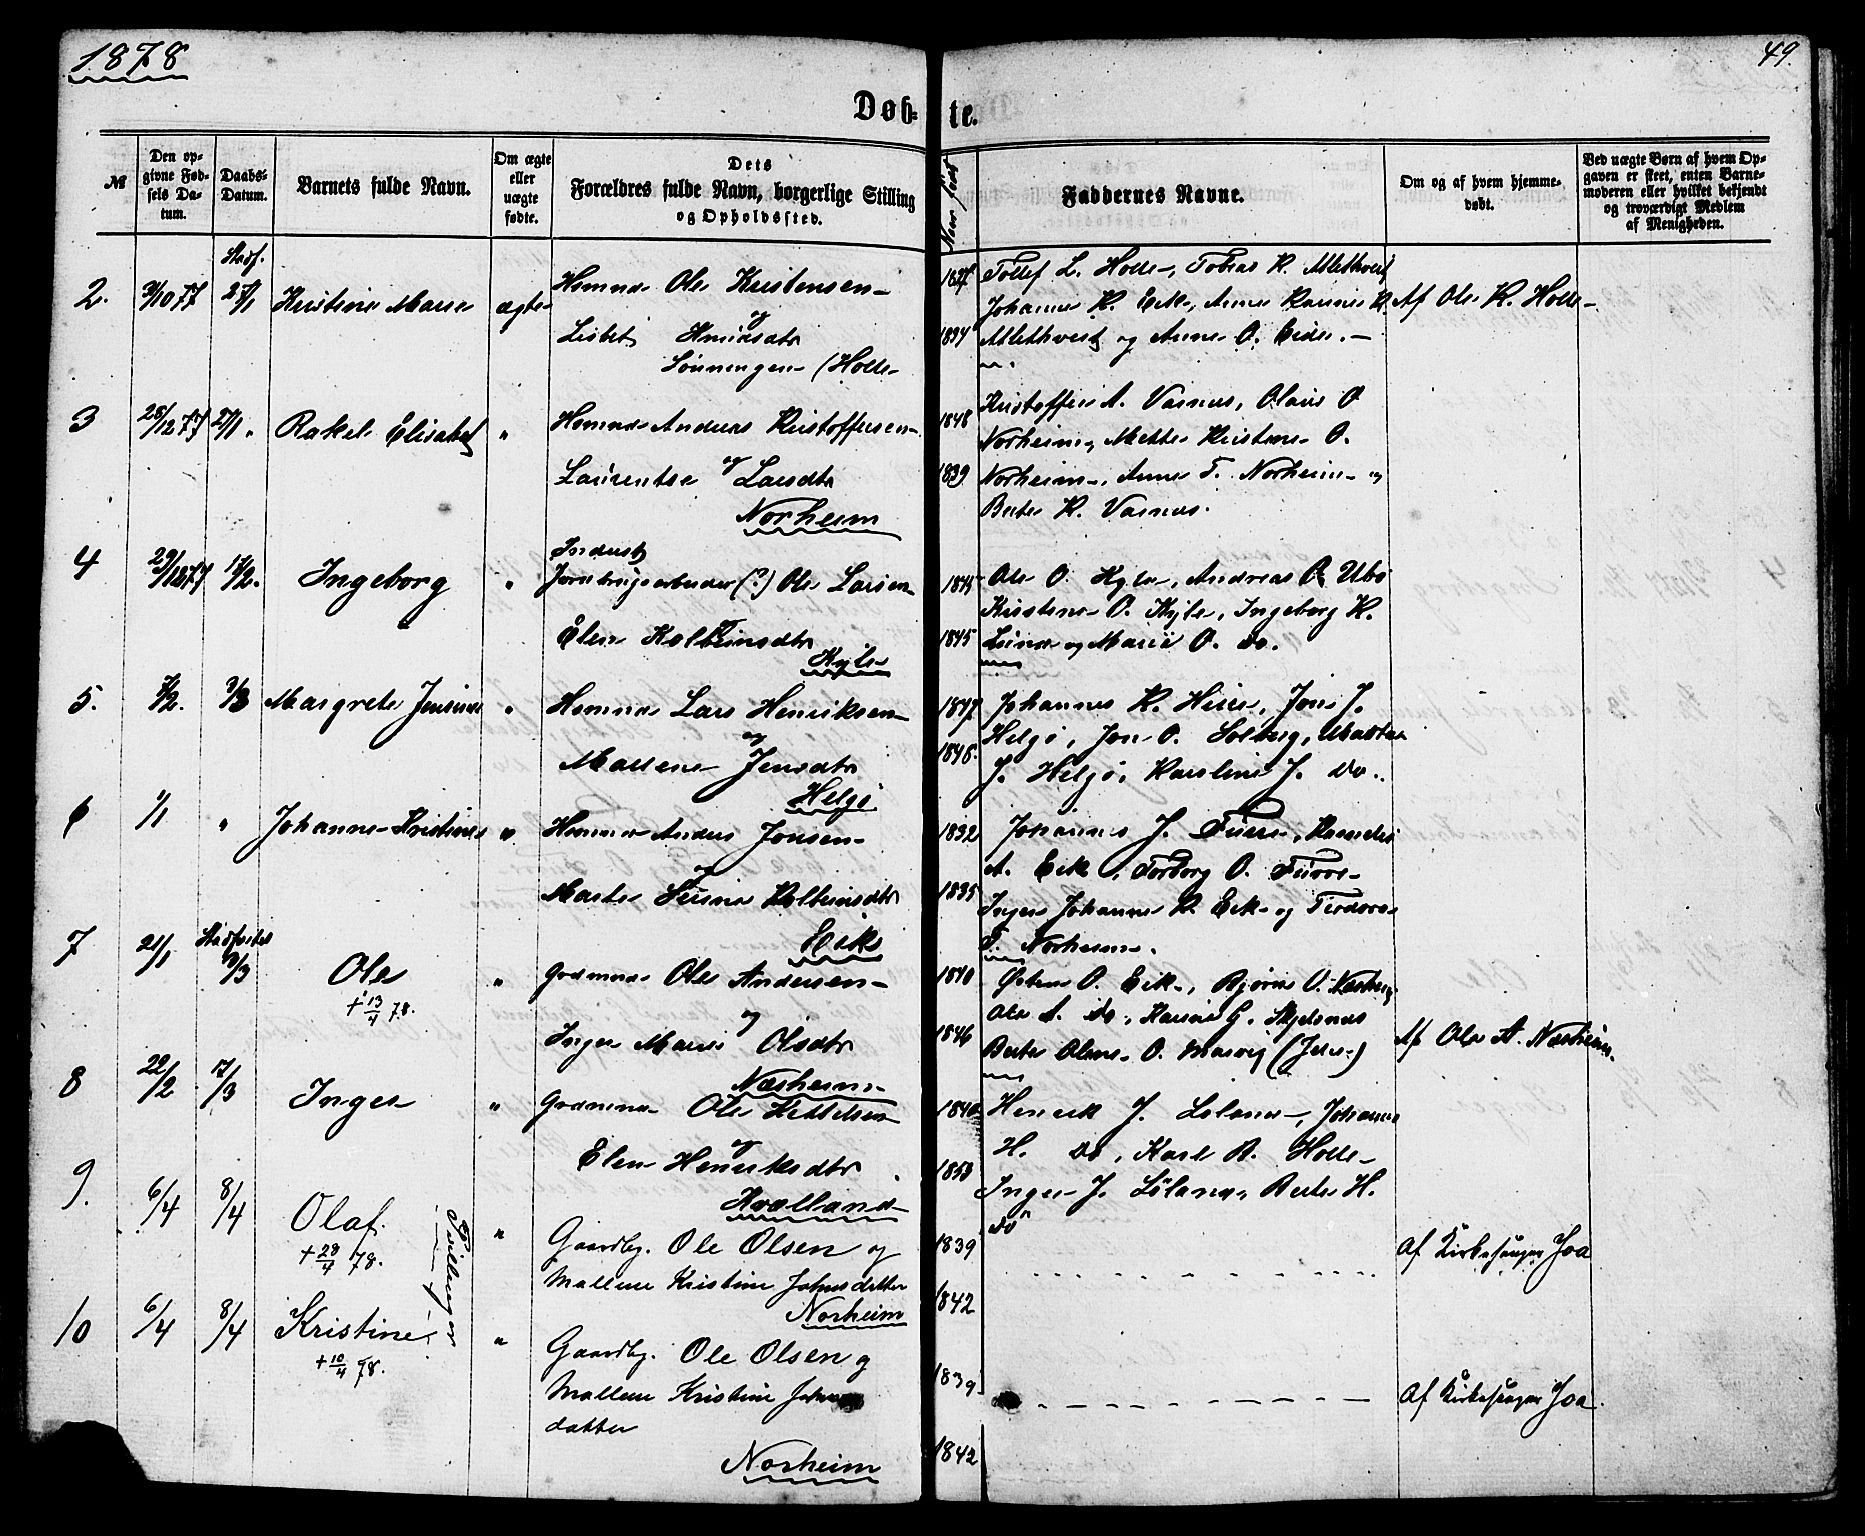 1878
49.
Døb-
te.
№
Den op-
givne Fød-
sels Da-
tum.
Daabs-
Datum.
Barnets fulde Navn.
Om ægte
eller
uægte
fødte.
Dets
Forældres fulde Navn, borgerlige Stilling
og Opholdssted.
Naar født
Faddernes Navne.
Om og af hvem hjemme-
døbt.
Ved uægte Børn af hvem Op-
gaven er skeet, enten Barne-
moderen eller hvilket bekjendt
og troværdigt Medlem
af Menigheden.
2.
Stadf.
27/1
Kristine Marie
ægte
Hmmd Ole Kristensen
og
Lisbet Knudsdtr
Sønningen (Holle
1827
1834
Tollef L. Holle, Tobias K.
Johannes K. Eik, Anne
og Anne O. Eide.
Af Ole K. Holle
3
28/12 77
27/1
Rakel Elisabet
"
Hmmd Andreas Kristoffersen
og
Laurentse Larsdtr
Norheim
1848
1839
Kristoffer A. Vasnes, Olaus O
Norheim, Mette Kristine O.
Norheim, Anne T. Norheim og
Berte K. Vasnes.
4
29/12 77
17/2.
Ingeborg
"
Inderst
(?) Ole Larsen
Elen Kolbeinsdtr
Kyle
1845
1845
Ole O. Kyle, Andreas O. Ubø
Kristene O. Kyle, Ingeborg K.
Lunde og Marie O. do.
5.
4/2.
3/3
Margrete Jensine
"
Hmmd Lars Henriksen
og
Mallene Jensdtr
Helgø
1847
1848.
Johannes K. Hiie, Jone J.
Helgø, Jon O. Solberg,
J. Helgø, Karoline J. do.
6
1/1
"
Johanne Kristine
"
Hmmd Anders Jonsen
og
Marte Serina Kolbeinsdtr
Eik
1832
1835
Johannes J. Furre,
A. Eik, Torborg O. Furre
Inger Johanne K. Eik og Teodora
T. Norheim.
7
21/1
Stadfestet
3/3
Ole
+ 13/4 78.
"
Grdmnd Ole Andersen
og
Inger Marie Olsdtr
Næsheim
1840
1846
Østen O. Eik, Bjørne O. Næsheim
Ole A. do, Karine G.
Berte Oline O. Marvig (Jelse)
Af Ole A. Næsheim.
8
22/2
17/3
Inger
"
Grdmnd Ole Kettelsen
og
Elen Henriksdtr
Kvælland
1840
1850
Henrik J. Løland, Johannes
H. do, Karl B. Holle
Inger J. Løland, Berte H.
do
9.
6/4
8/4
Olaf.
+ 28/4 78.
Tvillinger
"
Gaardbg. Ole Olsen og
Mallene Kristine Johnsdatter
Norheim
1839
1842
Af Kirkesanger Joa
10
6/4
8/4
Kristine
+ 10/4 78.
"
Gaardbg. Ole Olsen og
Mallene Kristine Johns
datter
Norheim
1839
1842
Af Kirkesanger Joa.